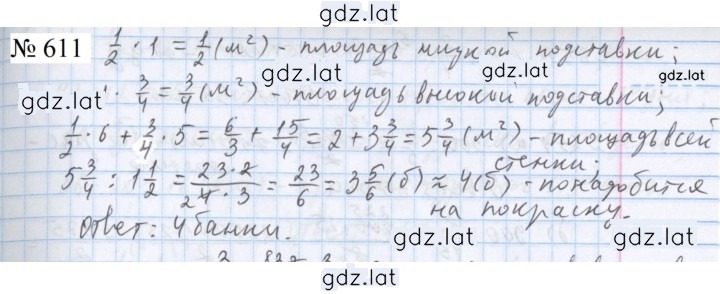 gdz.lat
№ 611 1/2 · 1 = 1/2 (м²) - площадь низкой подставки;
gdz.lat
gdz.lat
· 3/4 = 3/4 (м²) - площадь высокой подставки;
gdz.lat
1/2 · 6 + 3/4 · 5 = 6/3 + 15/4 = 2 + 3 3/4 = 5 3/4 (м²) - площадь всей
стенки;
5 3/4 : 1 1/2 = 23·2/4·3 = 23/6 = 3 5/6 (б) ≈ 4 (б) - понадобится
на покраску.
Ответ: 4 банки.
gdz.lat
gdz.lat
gdz.lat